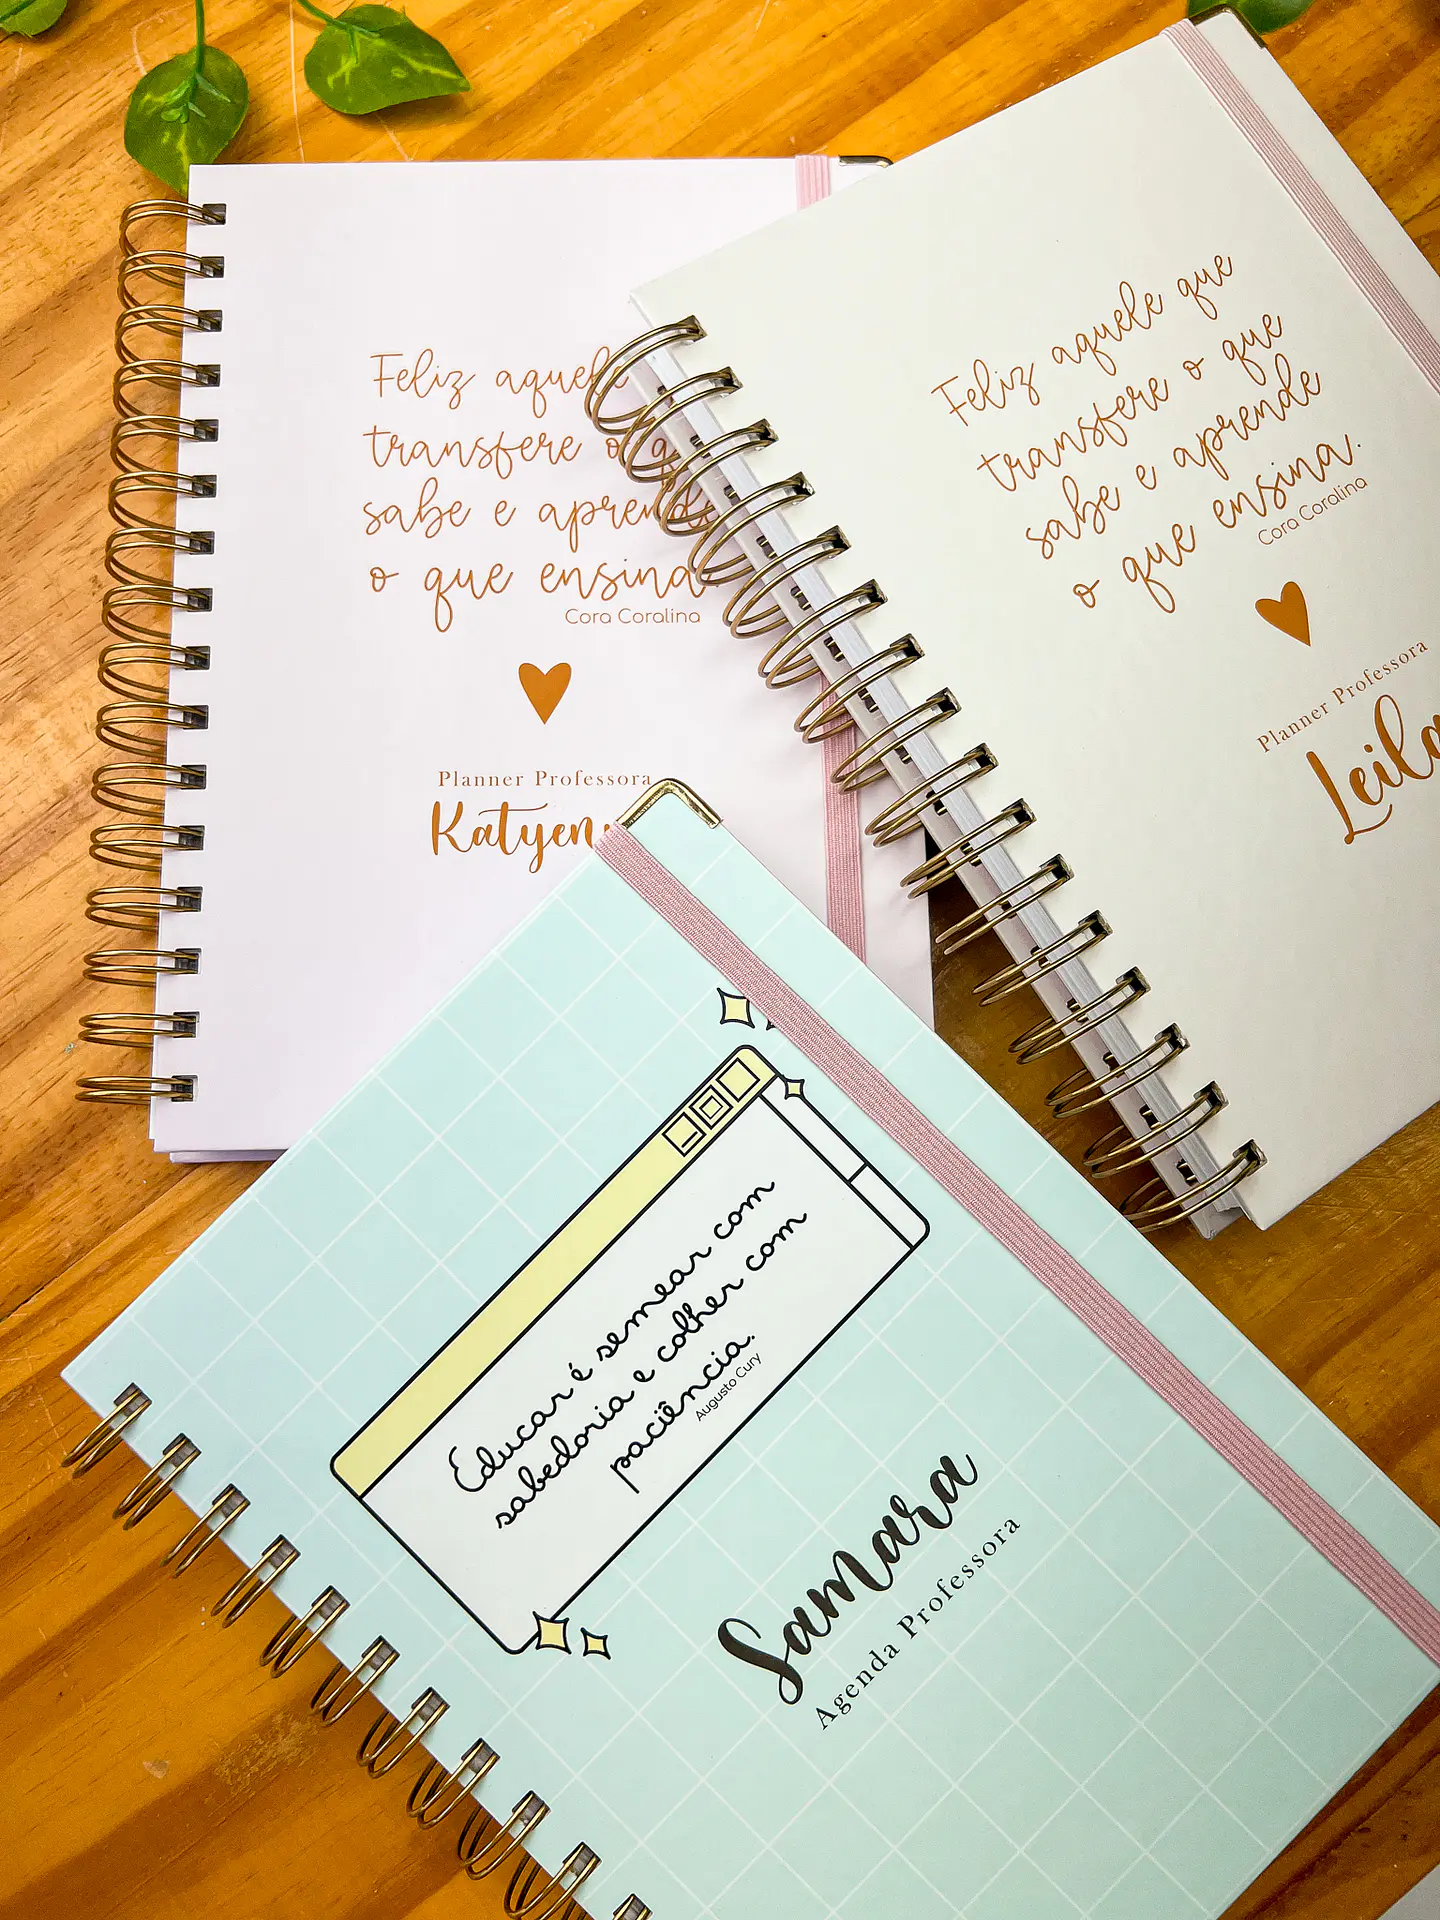 Feliz aquele
transfere o q
sabe e aprende
o que ensina.
Cora Coralina
Planner Professora
Katyen
Feliz aquele que
transfere o que
sabe e aprende
o que ensina.
Cora Coralina
Planner Professora
Leila
Educar é semear com
sabedoria e colher com
paciência.
Augusto Cury
Samara
Agenda Professora